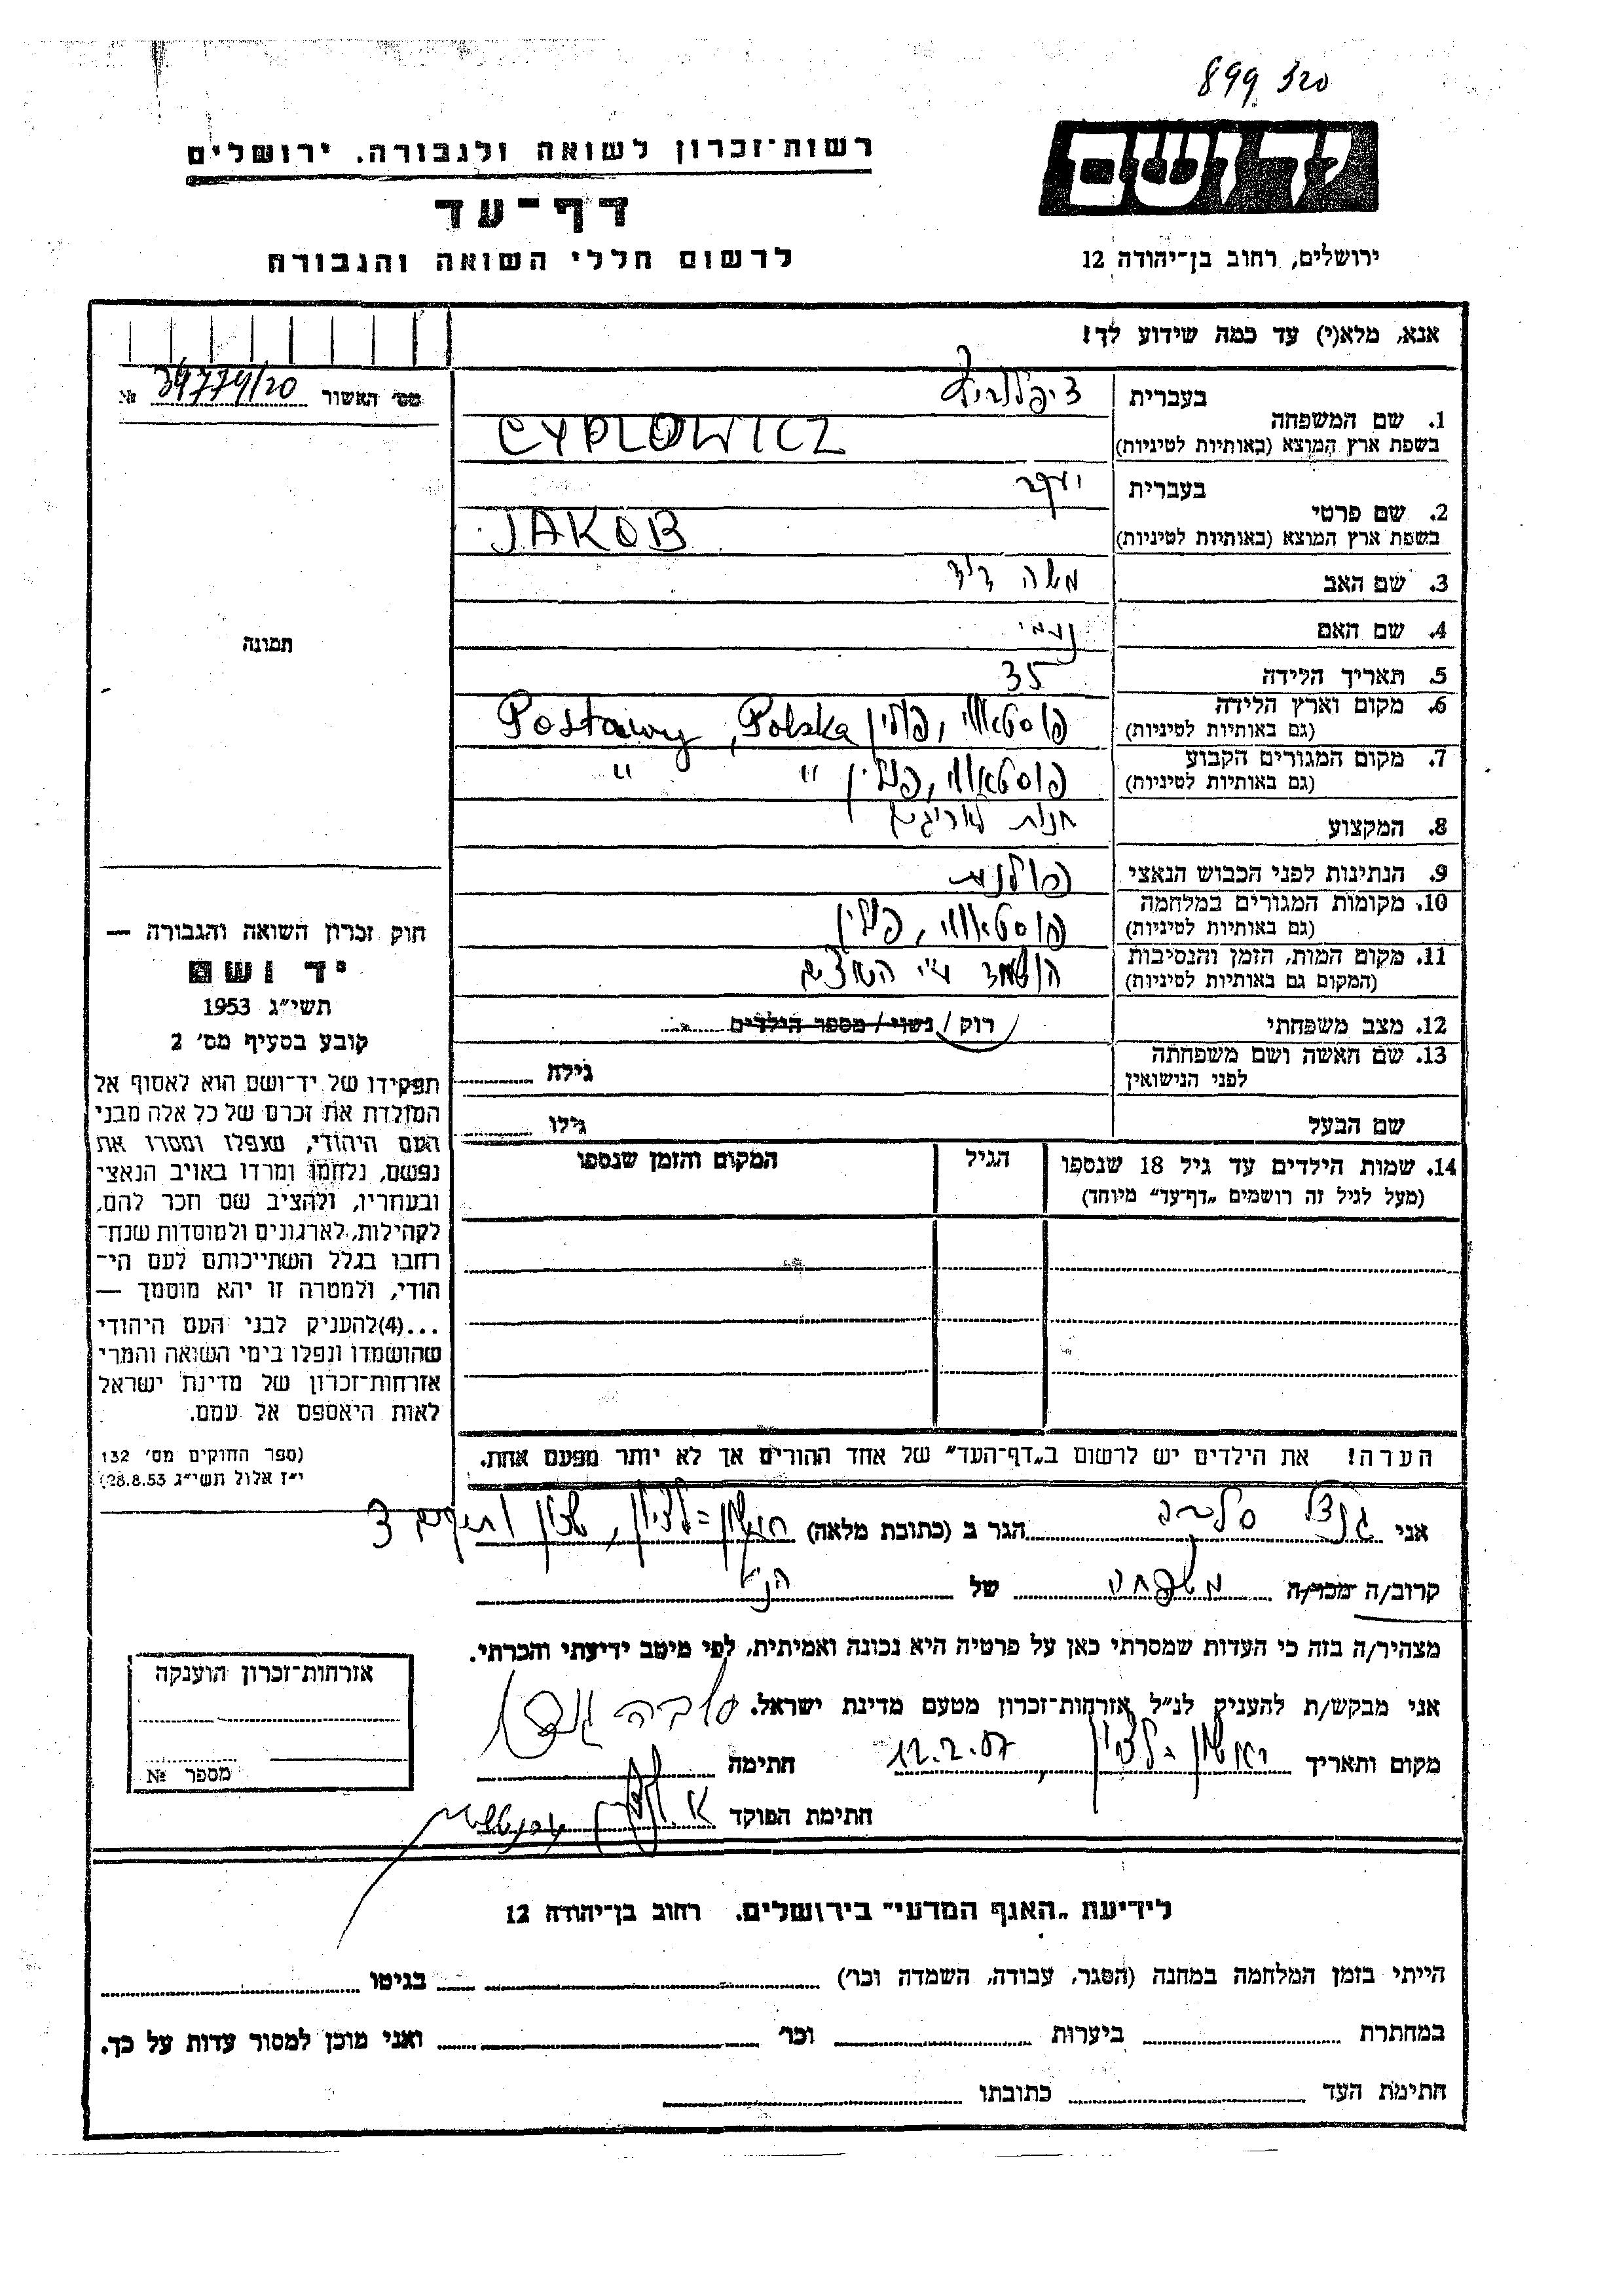 899 320
רשות־זכרון לשואה ולגבורה. ירושלים
יד ושם
דף־עד
לרשום חללי השואה והגבורה
ירושלים, רחוב בן־יהודה 12
אנא, מלא(י) עד כמה שידוע לך!
מס׳ האשור 39779/20 №
בעברית
1. שם המשפחה
בשפת ארץ המוצא (באותיות לטיניות) CYPLOWICZ
בעברית יעקב
2. שם פרטי
בשפת ארץ המוצא (באותיות לטיניות) JAKOB
3. שם האב משה דוד
4. שם האם נעמי
5. תאריך הלידה 35
6. מקום וארץ הלידה פוסטאווי, פולין Postawy, Polska
(גם באותיות לטיניות)
7. מקום המגורים הקבוע פוסטאווי, פולין " "
(גם באותיות לטיניות)
8. המקצוע חנות לאריגים
9. הנתינות לפני הכבוש הנאצי פולנית
10. מקומות המגורים במלחמה פוסטאווי, פולין
(גם באותיות לטיניות)
11. מקום המות, הזמן והנסיבות הושמד ע״י הנאצים
(המקום גם באותיות לטיניות)
12. מצב משפחתי רוק / נשוי / מספר הילדים
13. שם האשה ושם משפחתה
לפני הנישואין
גילה
שם הבעל
גילו
14. שמות הילדים עד גיל 18 שנספו
(מעל לגיל זה רושמים „דף־עד״ מיוחד)
הגיל
המקום והזמן שנספו
הערה! את הילדים יש לרשום ב„דף־העד״ של אחד ההורים אך לא יותר מפעם אחת.
תמונה
חוק זכרון השואה והגבורה —
יד ושם
תשי״ג 1953
קובע בסעיף מס׳ 2
תפקידו של יד־ושם הוא לאסוף אל
המולדת את זכרם של כל אלה מבני
העם היהודי, שנפלו ומסרו את
נפשם, נלחמו ומרדו באויב הנאצי
ובעוזריו, ולהציב שם וזכר להם,
לקהילות, לארגונים ולמוסדות שנח־
רבו בגלל השתייכותם לעם הי־
הודי, ולמטרה זו יהא מוסמך —
...(4)להעניק לבני העם היהודי
שהושמדו ונפלו בימי השואה והמרי
אזרחות־זכרון של מדינת ישראל
לאות היאספם אל עמם.
(ספר החוקים מס׳ 132
י״ז אלול תשי״ג 28.8.53)
אני סלובה הגר ב (כתובת מלאה) ראשון־לציון, שכון ותיקים 3
קרוב/ה מכר/ה משפחה של הנ״ל
מצהיר/ה בזה כי העדות שמסרתי כאן על פרטיה היא נכונה ואמיתית, לפי מיטב ידיעתי והכרתי.
אני מבקש/ת להעניק לנ״ל אזרחות־זכרון מטעם מדינת ישראל.
מקום ותאריך ראשון־לציון, 12.2.57 חתימה
חתימת הפוקד
אזרחות־זכרון הוענקה
מספר №
לידיעת „האגף המדעי״ בירושלים. רחוב בן־יהודה 12
הייתי בזמן המלחמה במחנה (הסגר, עבודה, השמדה וכו׳) בגיטו
במחתרת ביערות וכו׳ ואני מוכן למסור עדות על כך.
חתימת העד כתובתו